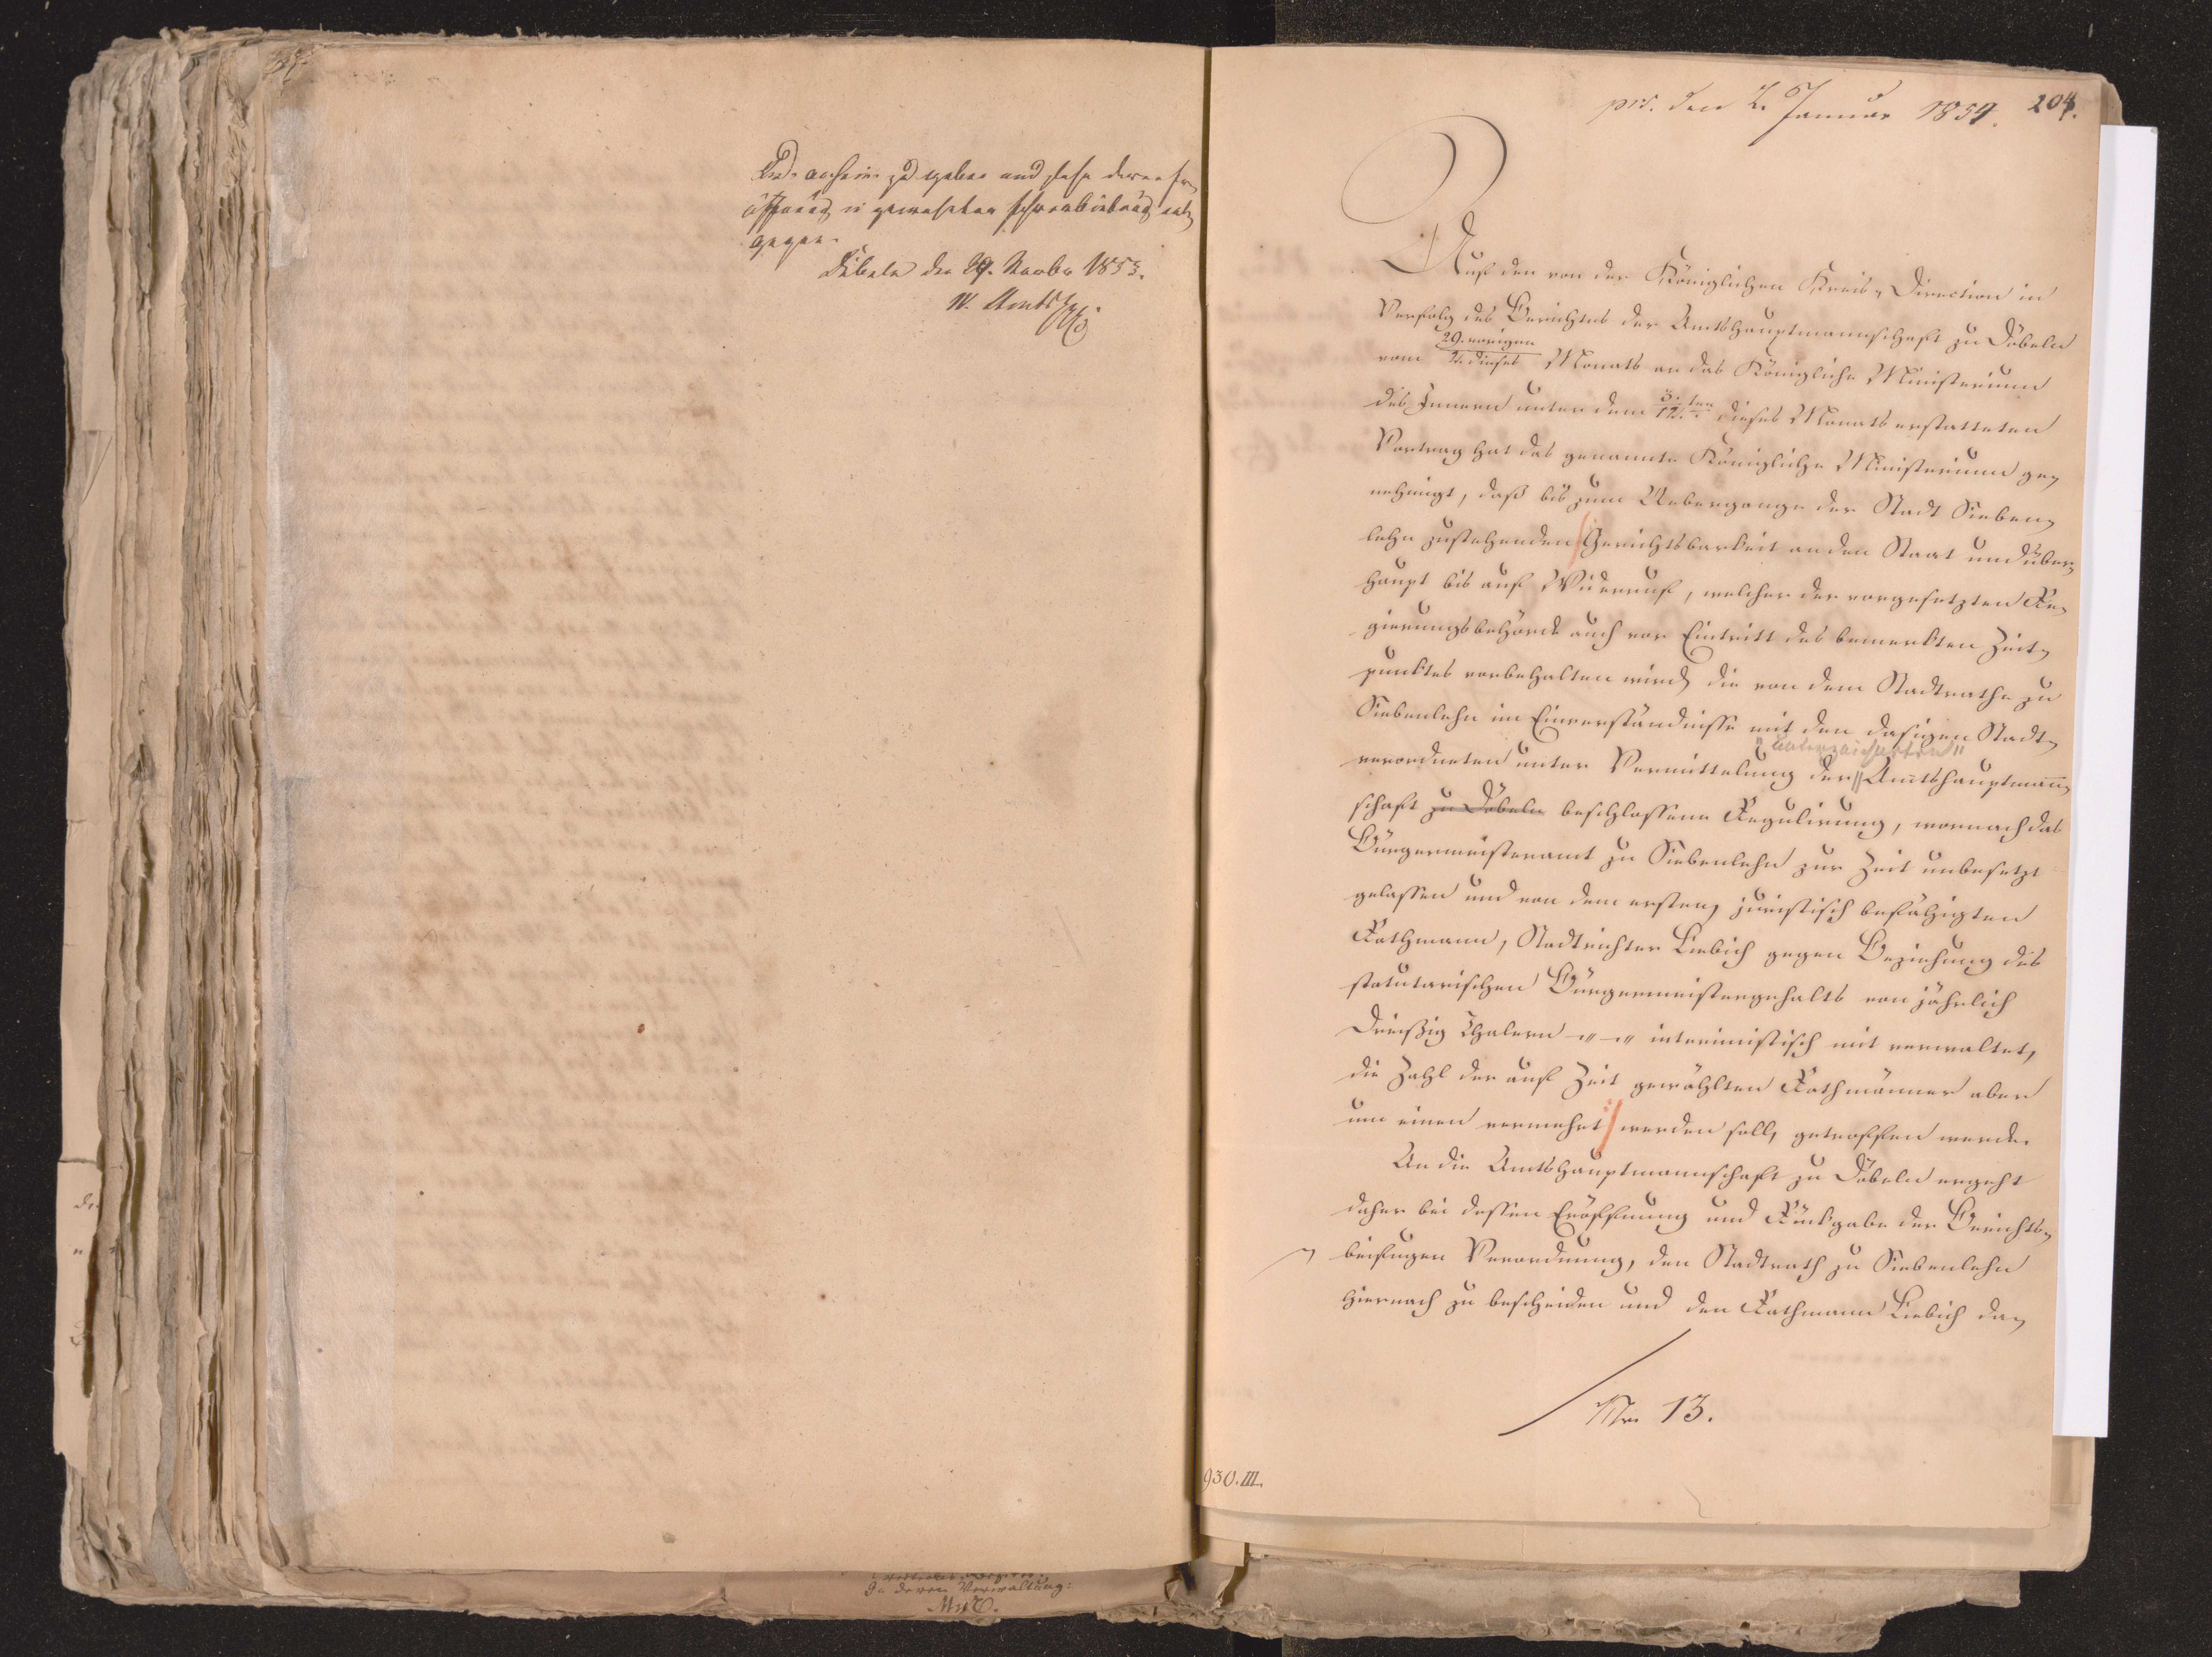 anheim zu geben und sehe deren Er¬
öffnung in geneigter
gegen.
Döbeln den 29. Novbr 1853.
prs. den 2. Januar 1854.
204.
Auf den von der Königlichen Kreis-Direction in
Verfolg des Berichtes der Amtshauptmannschaft zu Döbeln
vom 29. vorigen / 2. dieses Monats an das Königliche Ministerium
des Innern unter dem 3. / 12. ten dieses Monats erstatteten
Vortrag hat das genannte Königliche Ministerium ge-
nehmigt, daß bis zum Uebergange der Stadt Sieben-
lehn zustehenden Gerichtsbarkeit an den Staat und über-
haupt bis auf Widerruf, welcher der vorgesetzten Re-
gierungsbehörde auch vor Eintritt des bemerkten Zeit-
punktes vorbehalten wird, die von dem Stadtrathe zu
Siebenlehn im Einverständnisse mit den dasigen Stadt-
"unterzeichneten"
verordneten unter Vermittelung der Amtshauptmann-
schaft zu Döbeln beschlossene Regulirung, wornach das
Bürgermeisteramt zu Siebenlehn zur Zeit unbesetzt
gelassen und von dem ersten, juristisch befähigten
Rathmann, Stadtrichter Liebich gegen Beziehung des
statutarischen Bürgermeistergehalts von jährlich
Dreißig Thalern -"-" interimistisch mit verwaltet,
die Zahl der auf Zeit gewählten Rathmänner aber
um einen vermehrt werden soll, getroffen werde.
An die Amtshauptmannschaft zu Döbeln ergeht
daher bei dessen Eröffnung und Rückgabe der Berichts-
beifugen Verordnung, den Stadtrath zu Siebenlehn
hiernach zu bescheiden und den Rathmann Liebich da-
No 13.
930. III.
In deren Verwaltung: